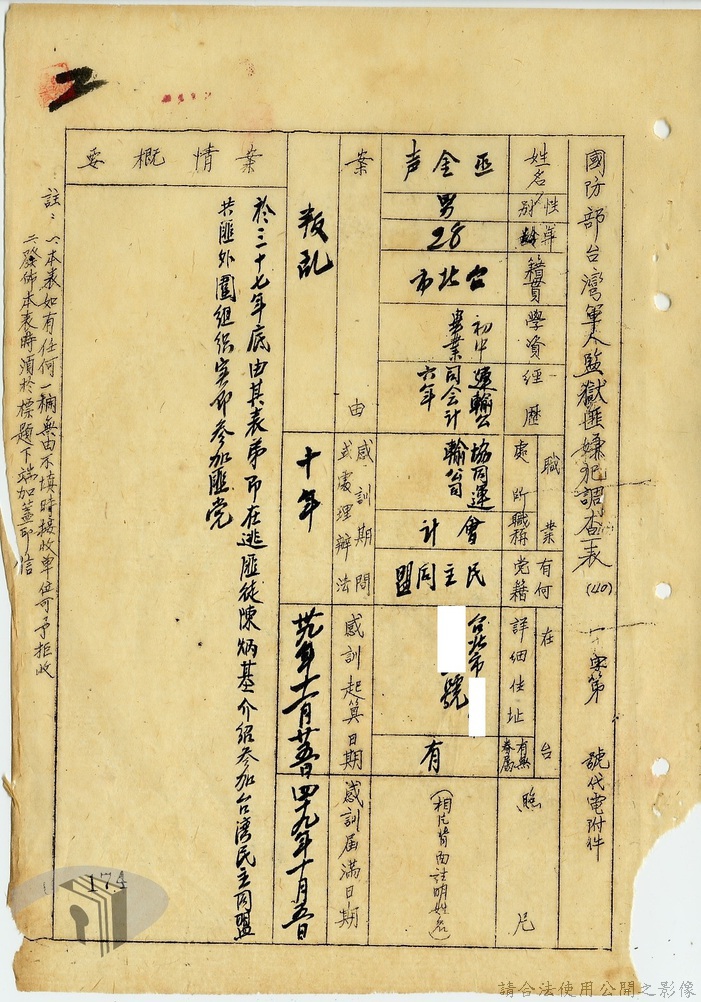 國防部台灣軍人監獄匪嫌犯調查表 (40) 字第 號代電附件
姓名
巫金声
性別
男
年齡
28
籍貫
台北市
學資
初中
畢業
經歷
運輸公
司会計
六年
職業
處所
協同運
輸公司
職稱
會計
有何党籍
民主同盟
在台
詳細住址
台北市
號
有無眷属
有
照片
(相片背面註明姓名)
案由
叛乱
感訓期間
或處理辦法
十年
感訓起算日期
廿九年十一月廿五日
感訓屆滿日期
四十九年十月五日
案情概要
於三十七年底由其表弟即在逃匪徒陳炳基介紹参加台湾民主同盟
共匪外圍組织实即参加匪党
註:一、本表如有任何一欄無由不填時接收單位可予拒收
二、發佈本表時須於標題下端加蓋印信
174
請合法使用公開之影像